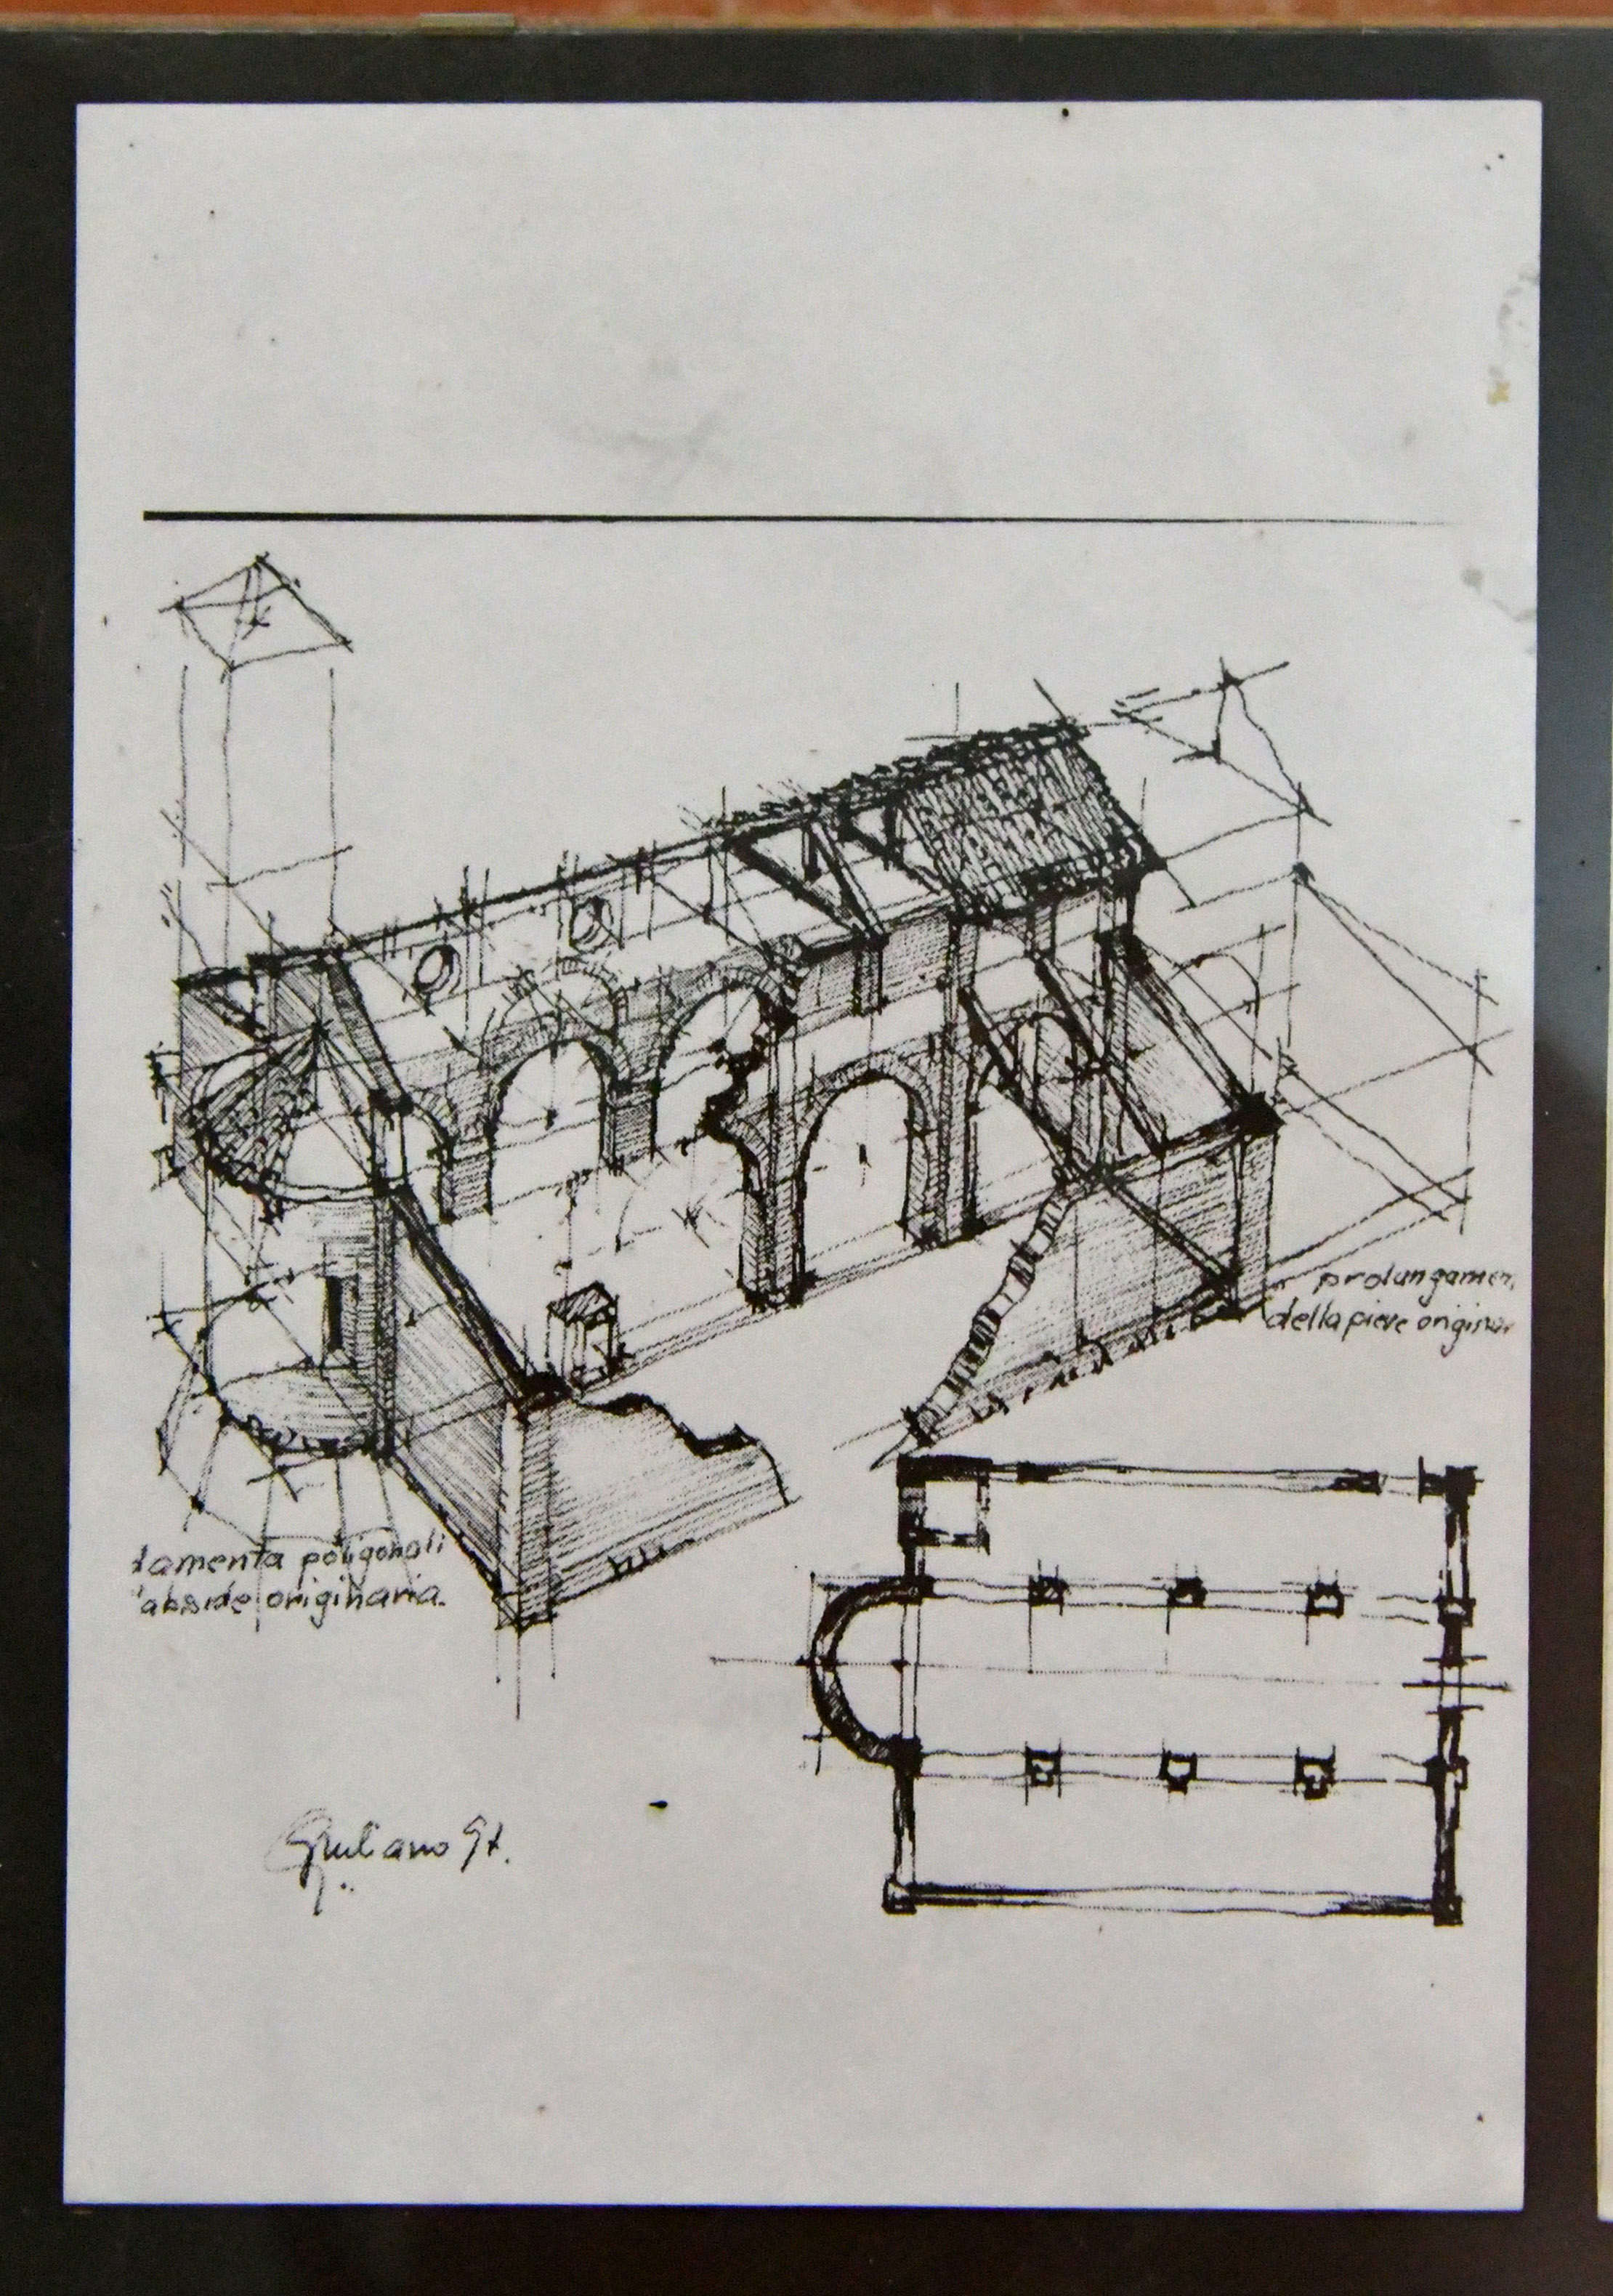 prolungamen
della pieve origina
damenta poligonali
'abside originaria.
Giuliano